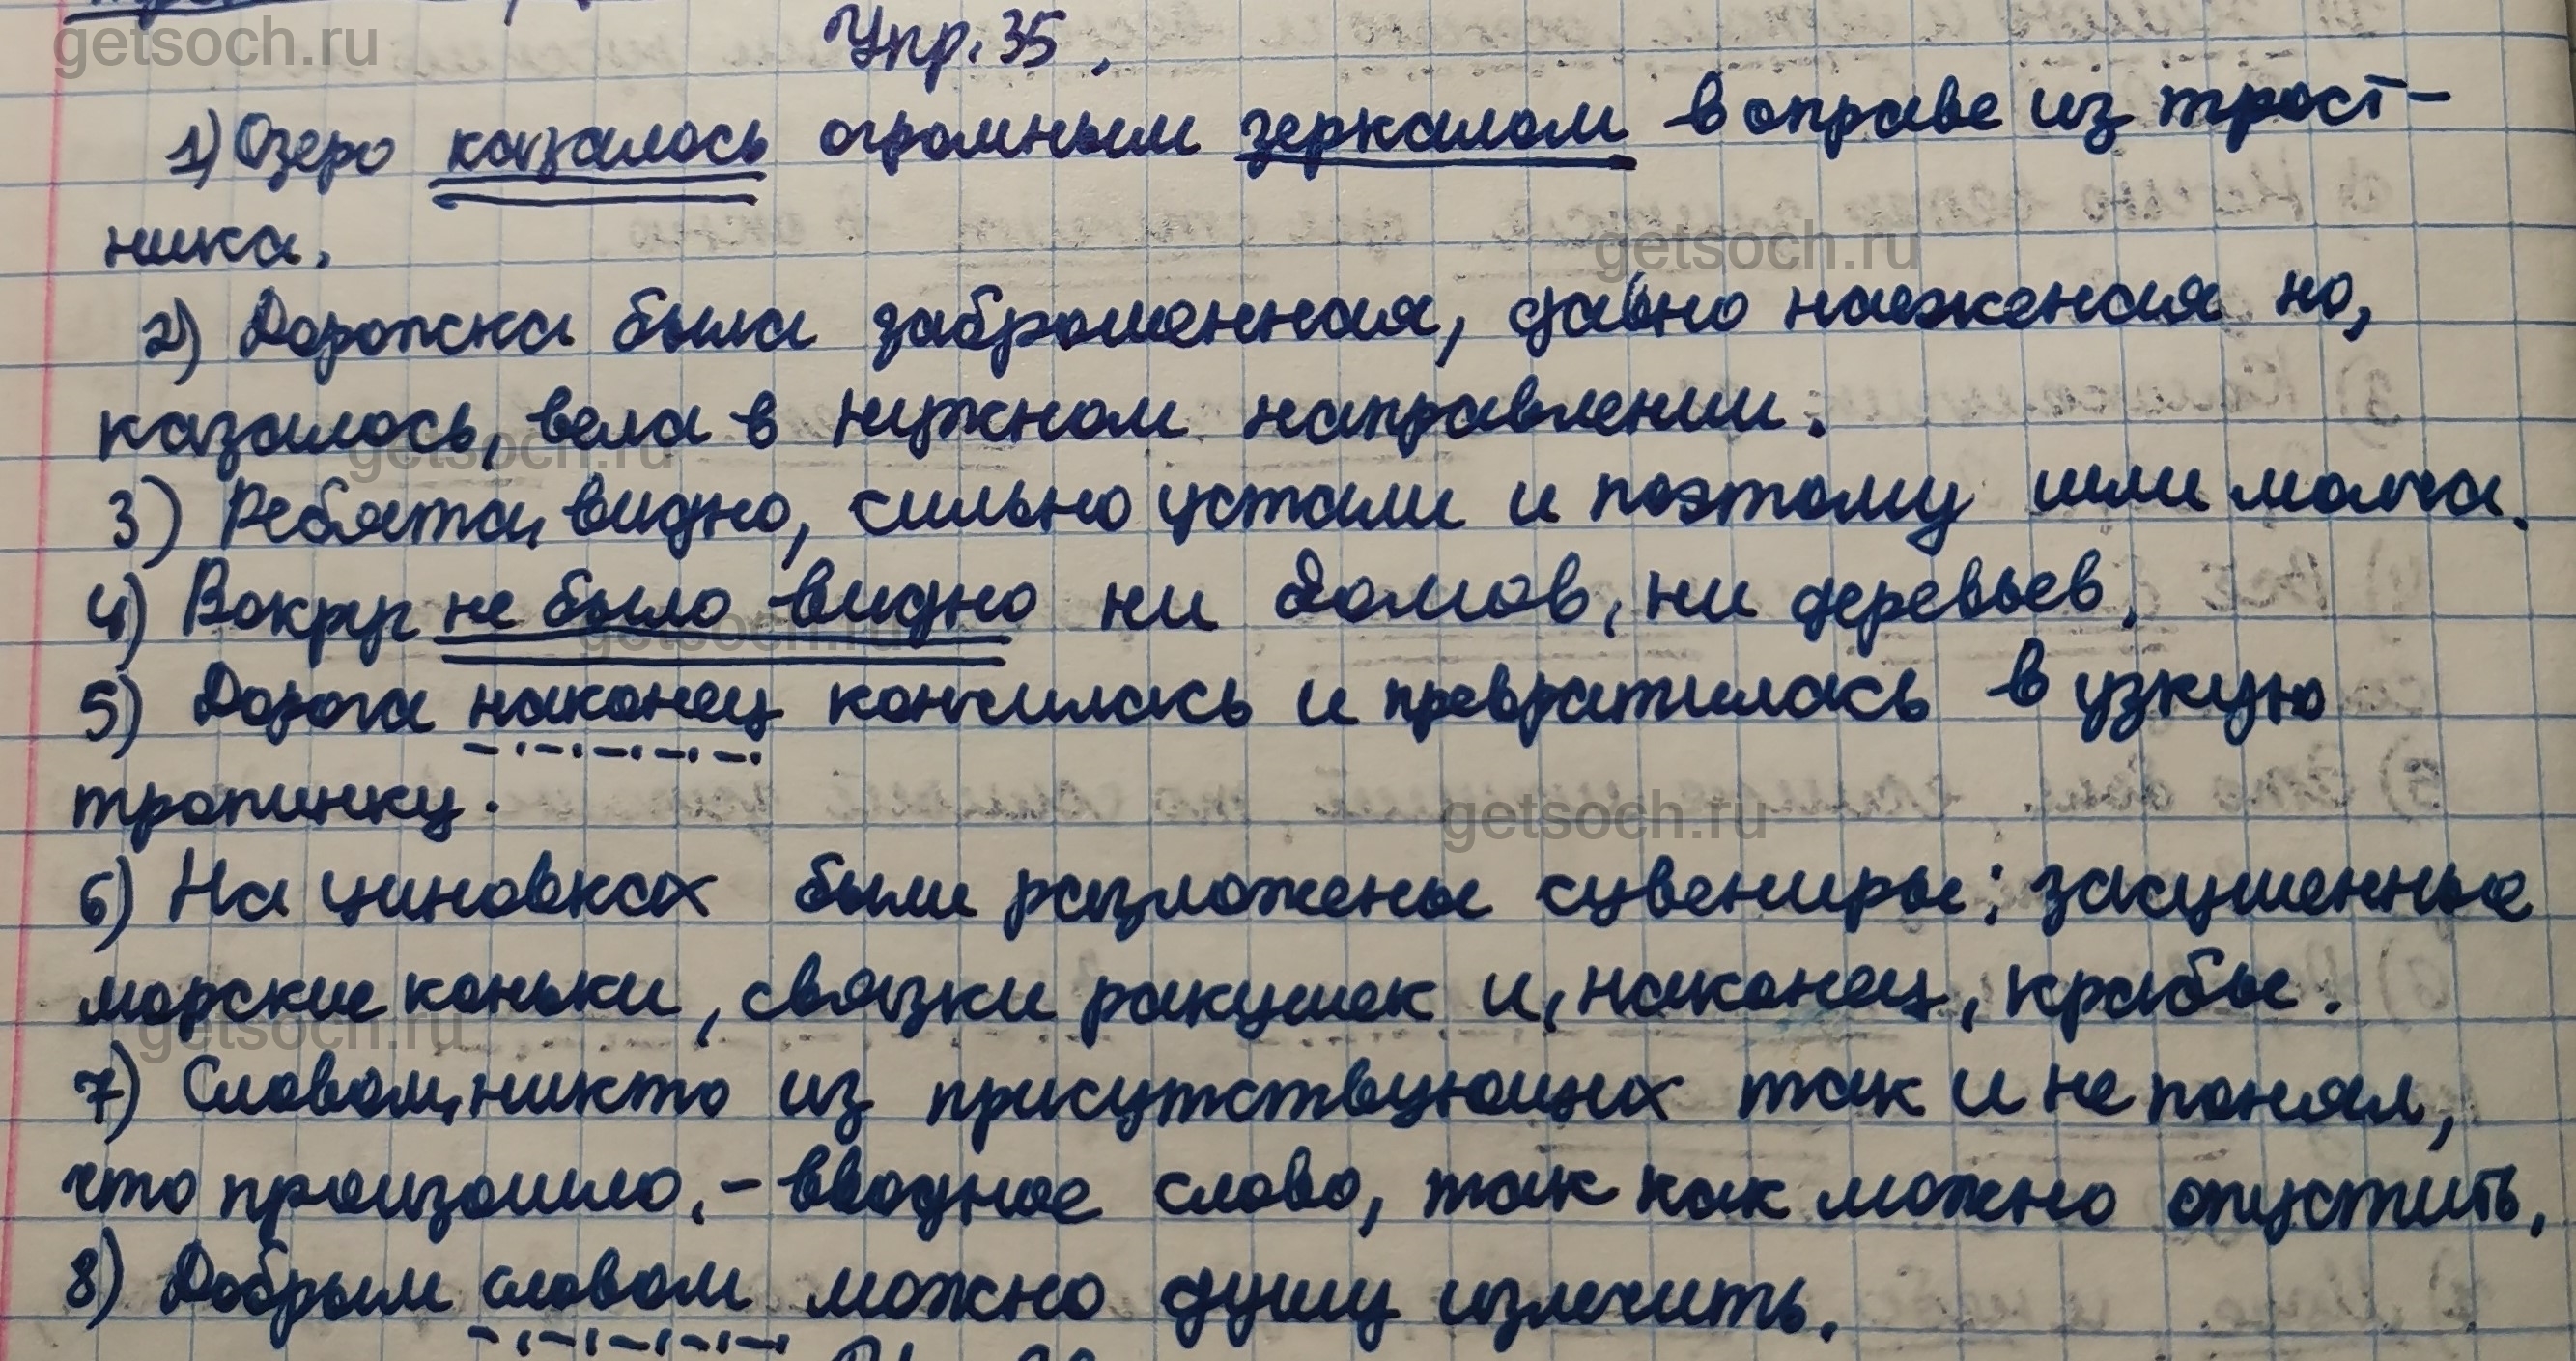 getsoch.ru
Упр. 35.
1) Озеро казалось огромным зеркалом в оправе из трост-
ника.
getsoch.ru
2) Дорожка была заброшенная, давно наезженая но,
казалось, вела в нужном направлении.
getsoch.ru
3) Ребята, видно, сильно устали и поэтому шли молча.
4) Вокруг не было видно ни домов, ни деревьев.
getsoch.ru
5) Дорога наконец кончилась и превратилась в узкую
тропинку.
getsoch.ru
6) На циновках были разложены сувениры: засушенные
морские коньки, связки ракушек и, наконец, крабы.
getsoch.ru
7) Словом, никто из присутствующих так и не понял,
что произошло. - вводное слово, так как можно опустить.
8) Добрым словом можно душу излечить.